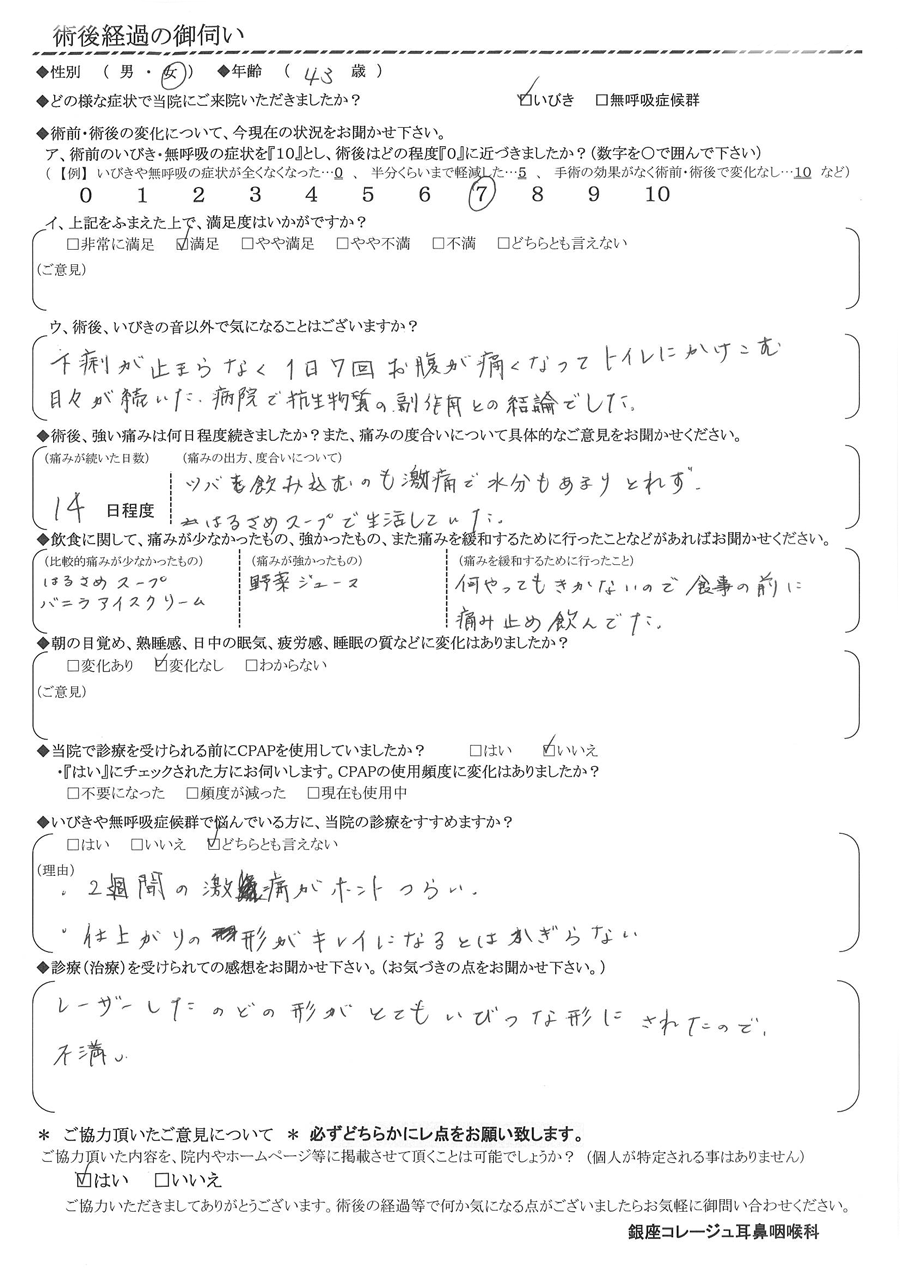 術後経過の御伺い
◆性別 ( 男 ・ 女 ) ◆年齢 ( 43 歳 )
◆どの様な症状で当院にご来院いただきましたか? ☑いびき □無呼吸症候群
◆術前・術後の変化について、今現在の状況をお聞かせ下さい。
ア、術前のいびき・無呼吸の症状を『10』とし、術後はどの程度『0』に近づきましたか?(数字を〇で囲んで下さい)
(【例】いびきや無呼吸の症状が全くなくなった…0 、 半分くらいまで軽減した…5 、 手術の効果がなく術前・術後で変化なし…10 など)
0 1 2 3 4 5 6 7 8 9 10
イ、上記をふまえた上で、満足度はいかがですか?
□非常に満足 ☑満足 □やや満足 □やや不満 □不満 □どちらとも言えない
(ご意見)
ウ、術後、いびきの音以外で気になることはございますか?
下痢が止まらなく1日7回お腹が痛くなってトイレにかけこむ
日々が続いた。病院で抗生物質の副作用との結論でした。
◆術後、強い痛みは何日程度続きましたか?また、痛みの度合いについて具体的なご意見をお聞かせください。
(痛みが続いた日数) (痛みの出方、度合いについて)
ツバを飲み込むのも激痛で水分もあまりとれず。
14 日程度
はるさめスープで生活していた。
◆飲食に関して、痛みが少なかったもの、強かったもの、また痛みを緩和するために行ったことなどがあればお聞かせください。
(比較的痛みが少なかったもの) (痛みが強かったもの) (痛みを緩和するために行ったこと)
はるさめスープ 野菜ジュース 何やってもきかないので食事の前に
バニラアイスクリーム 痛み止め飲んでた。
◆朝の目覚め、熟睡感、日中の眠気、疲労感、睡眠の質などに変化はありましたか?
□変化あり ☑変化なし □わからない
(ご意見)
◆当院で診療を受けられる前にCPAPを使用していましたか? □はい ☑いいえ
・『はい』にチェックされた方にお伺いします。CPAPの使用頻度に変化はありましたか?
□不要になった □頻度が減った □現在も使用中
◆いびきや無呼吸症候群で悩んでいる方に、当院の診療をすすめますか?
□はい □いいえ ☑どちらとも言えない
(理由)
・2週間の激痛がホントつらい。
・仕上がりの形がキレイになるとはかぎらない
◆診療(治療)を受けられての感想をお聞かせ下さい。(お気づきの点をお聞かせ下さい。)
レーザーしたのどの形がとてもいびつな形にされたので、
不満。
＊ ご協力頂いたご意見について ＊ 必ずどちらかにレ点をお願い致します。
ご協力頂いた内容を、院内やホームページ等に掲載させて頂くことは可能でしょうか? (個人が特定される事はありません)
☑はい □いいえ
ご協力いただきましてありがとうございます。術後の経過等で何か気になる点がございましたらお気軽に御問い合わせください。
銀座コレージュ耳鼻咽喉科